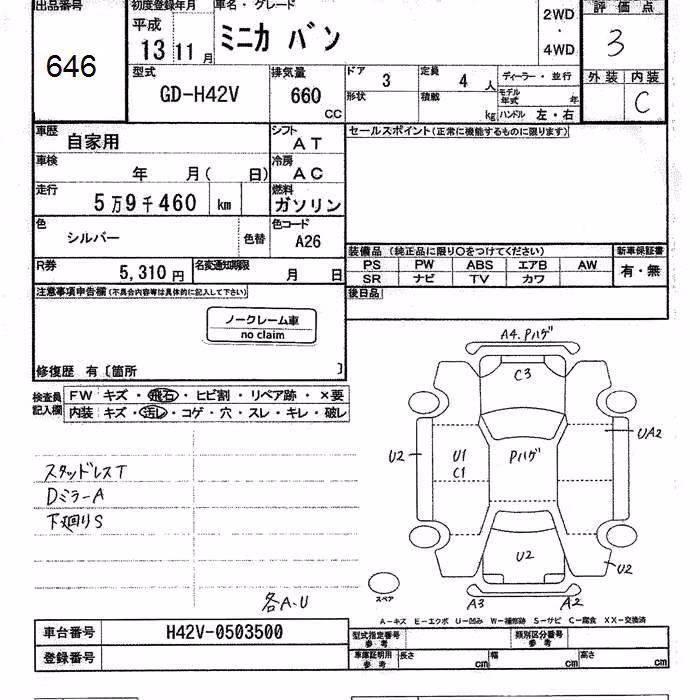 出品番号
646
初度登録年月
平成
13 11 月
車名・グレード
ミニカ バン
2WD
・
4WD
評価点
3
外装 内装
C
型式
GD-H42V
排気量
660
CC
ドア
3
定員
4 人
形状
積載
kg
ディーラー・並行
モデル年式
年
ハンドル 左・右
車歴
自家用
シフト
AT
車検
年 月( 日)
冷房
AC
走行
5万9千460 km
燃料
ガソリン
色
シルバー
色替
色コード
A26
R券
5,310 円
名変通知期限
月 日
セールスポイント(正常に機能するものに限ります)
装備品 (純正品に限り○をつけてください)
PS PW ABS エアB AW
SR ナビ TV カワ
新車保証書
有・無
後日品
注意事項申告欄 (不具合内容等は具体的に記入して下さい)
ノークレーム車
no claim
修復歴 有〔箇所 〕
検査員
記入欄
FW キズ ・ 飛石 ・ ヒビ割 ・ リペア跡 ・ ×要
内装 キズ ・ 汚レ ・ コゲ ・ 穴 ・ スレ ・ キレ ・ 破レ
スタッドレスT
DミラーA
下廻りS
各A.U
A4.Pハゲ
C3
U2
U1
C1
Pハゲ
UA2
U2
U2
スペア
A3
A2
A−キズ E−エクボ U−凹み W−補修跡 S−サビ C−腐食 XX−交換済
車台番号
H42V-0503500
登録番号
型式指定番号
参考
類別区分番号
参考
車庫証明用
参考
長さ cm
幅 cm
高さ cm